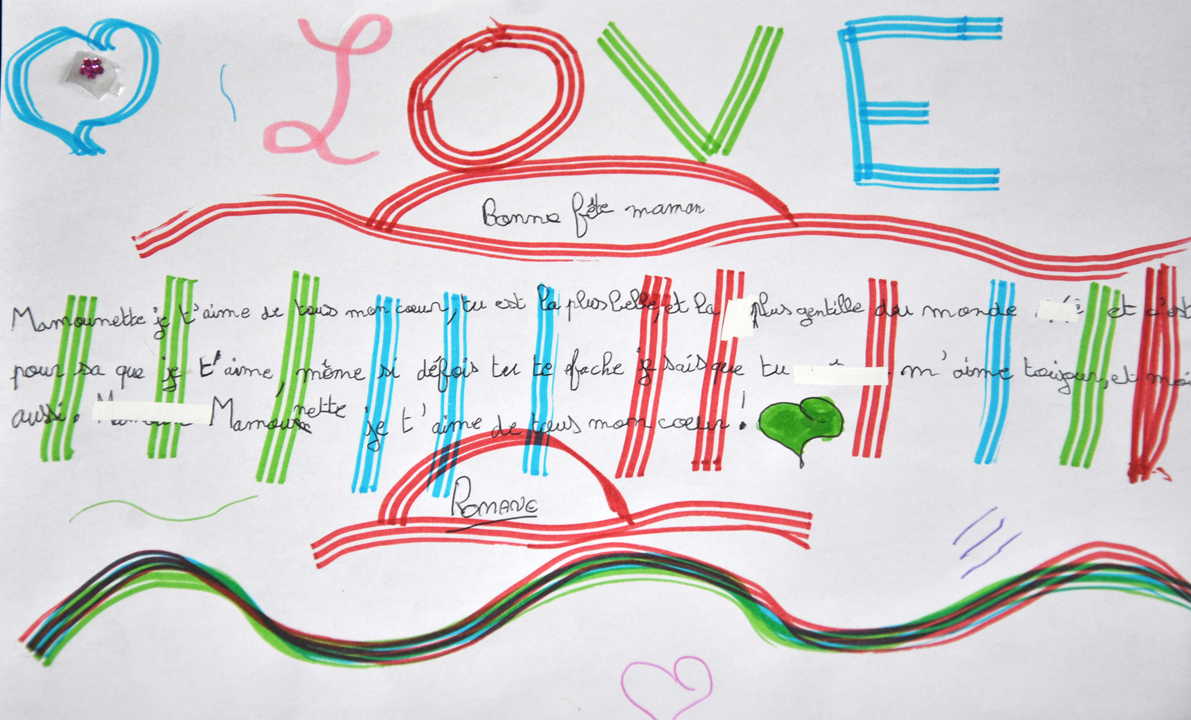 LOVE
Bonne fête maman
Mamounette je t'aime de tous mon cœur, tu est la plus belle, et la plus gentille du monde et c'est
pour sa que je t'aime, même si défois tu te fache je sais que tu m'aime toujour, et moi
aussi. Mamounette je t'aime de tous mon cœur !
ROMANE